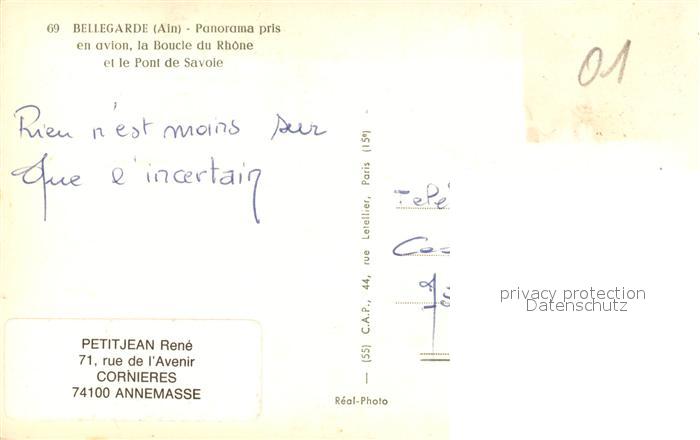 69 BELLEGARDE (Ain) - Panorama pris
en avion, la Boucle du Rhône
et le Pont de Savoie
01
Rien n'est moins sur
Que l'incertain
Telé
(55) C.A.P., 44, rue Letellier, Paris (15e)
privacy protection
Datenschutz
PETITJEAN René
71, rue de l'Avenir
CORNIERES
74100 ANNEMASSE
Réal-Photo